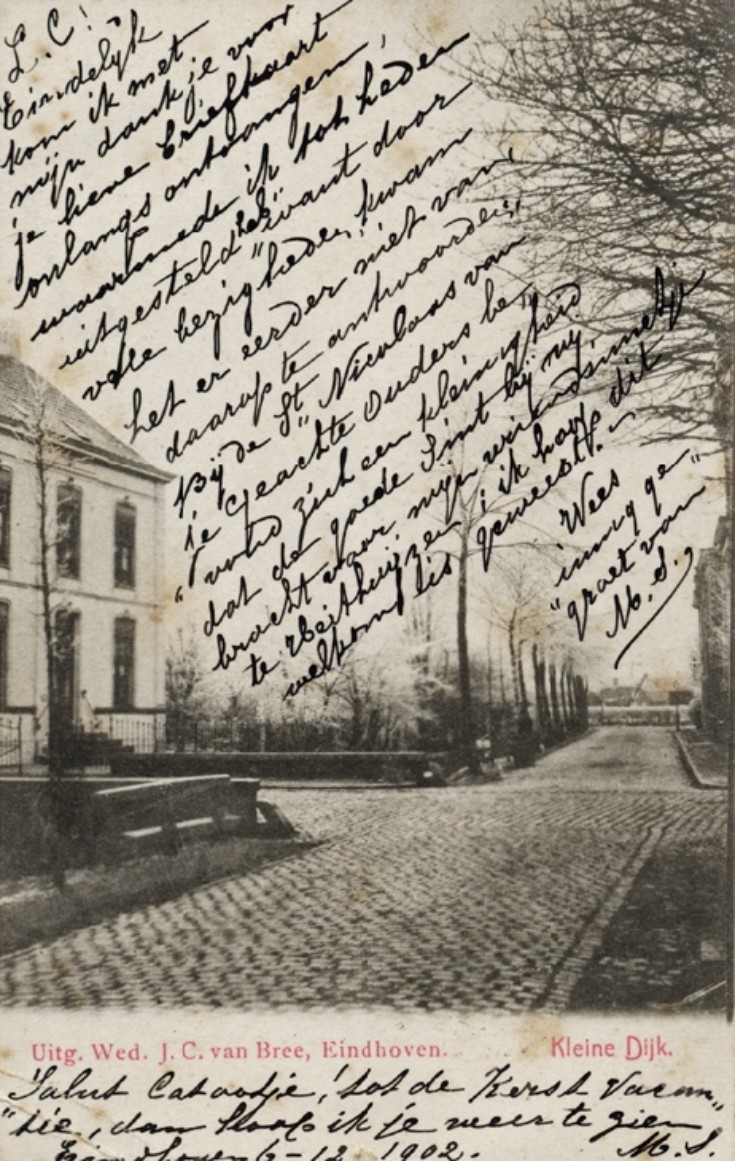 L. C!
Eindelijk
kom ik met
mijn dank je voor
je lieve briefkaart
onlangs ontvangen,
waarmede ik tot heden
uitgesteld heb "want door
vele bezigheden, kwam
het er eerder niet van,
daarop te antwoorden,,
Bij de St Nicolaas van
je Geachte Ouders be,,
"vond zich een kleinigheid
dat de goede Sint bij mij
bracht voor mijn vriendinnetje
te ; ik hoop dit
welkom is geweest.
Wees
innig ge,,
"groet van
M. S.
Uitg. Wed. J. C. van Bree, Eindhoven.
Kleine Dijk.
Salut Catootje,! tot de Kerst Vacan,,
"tie, dan hoop ik je weer te zien
Eindhoven 6-12 1902. M. S.